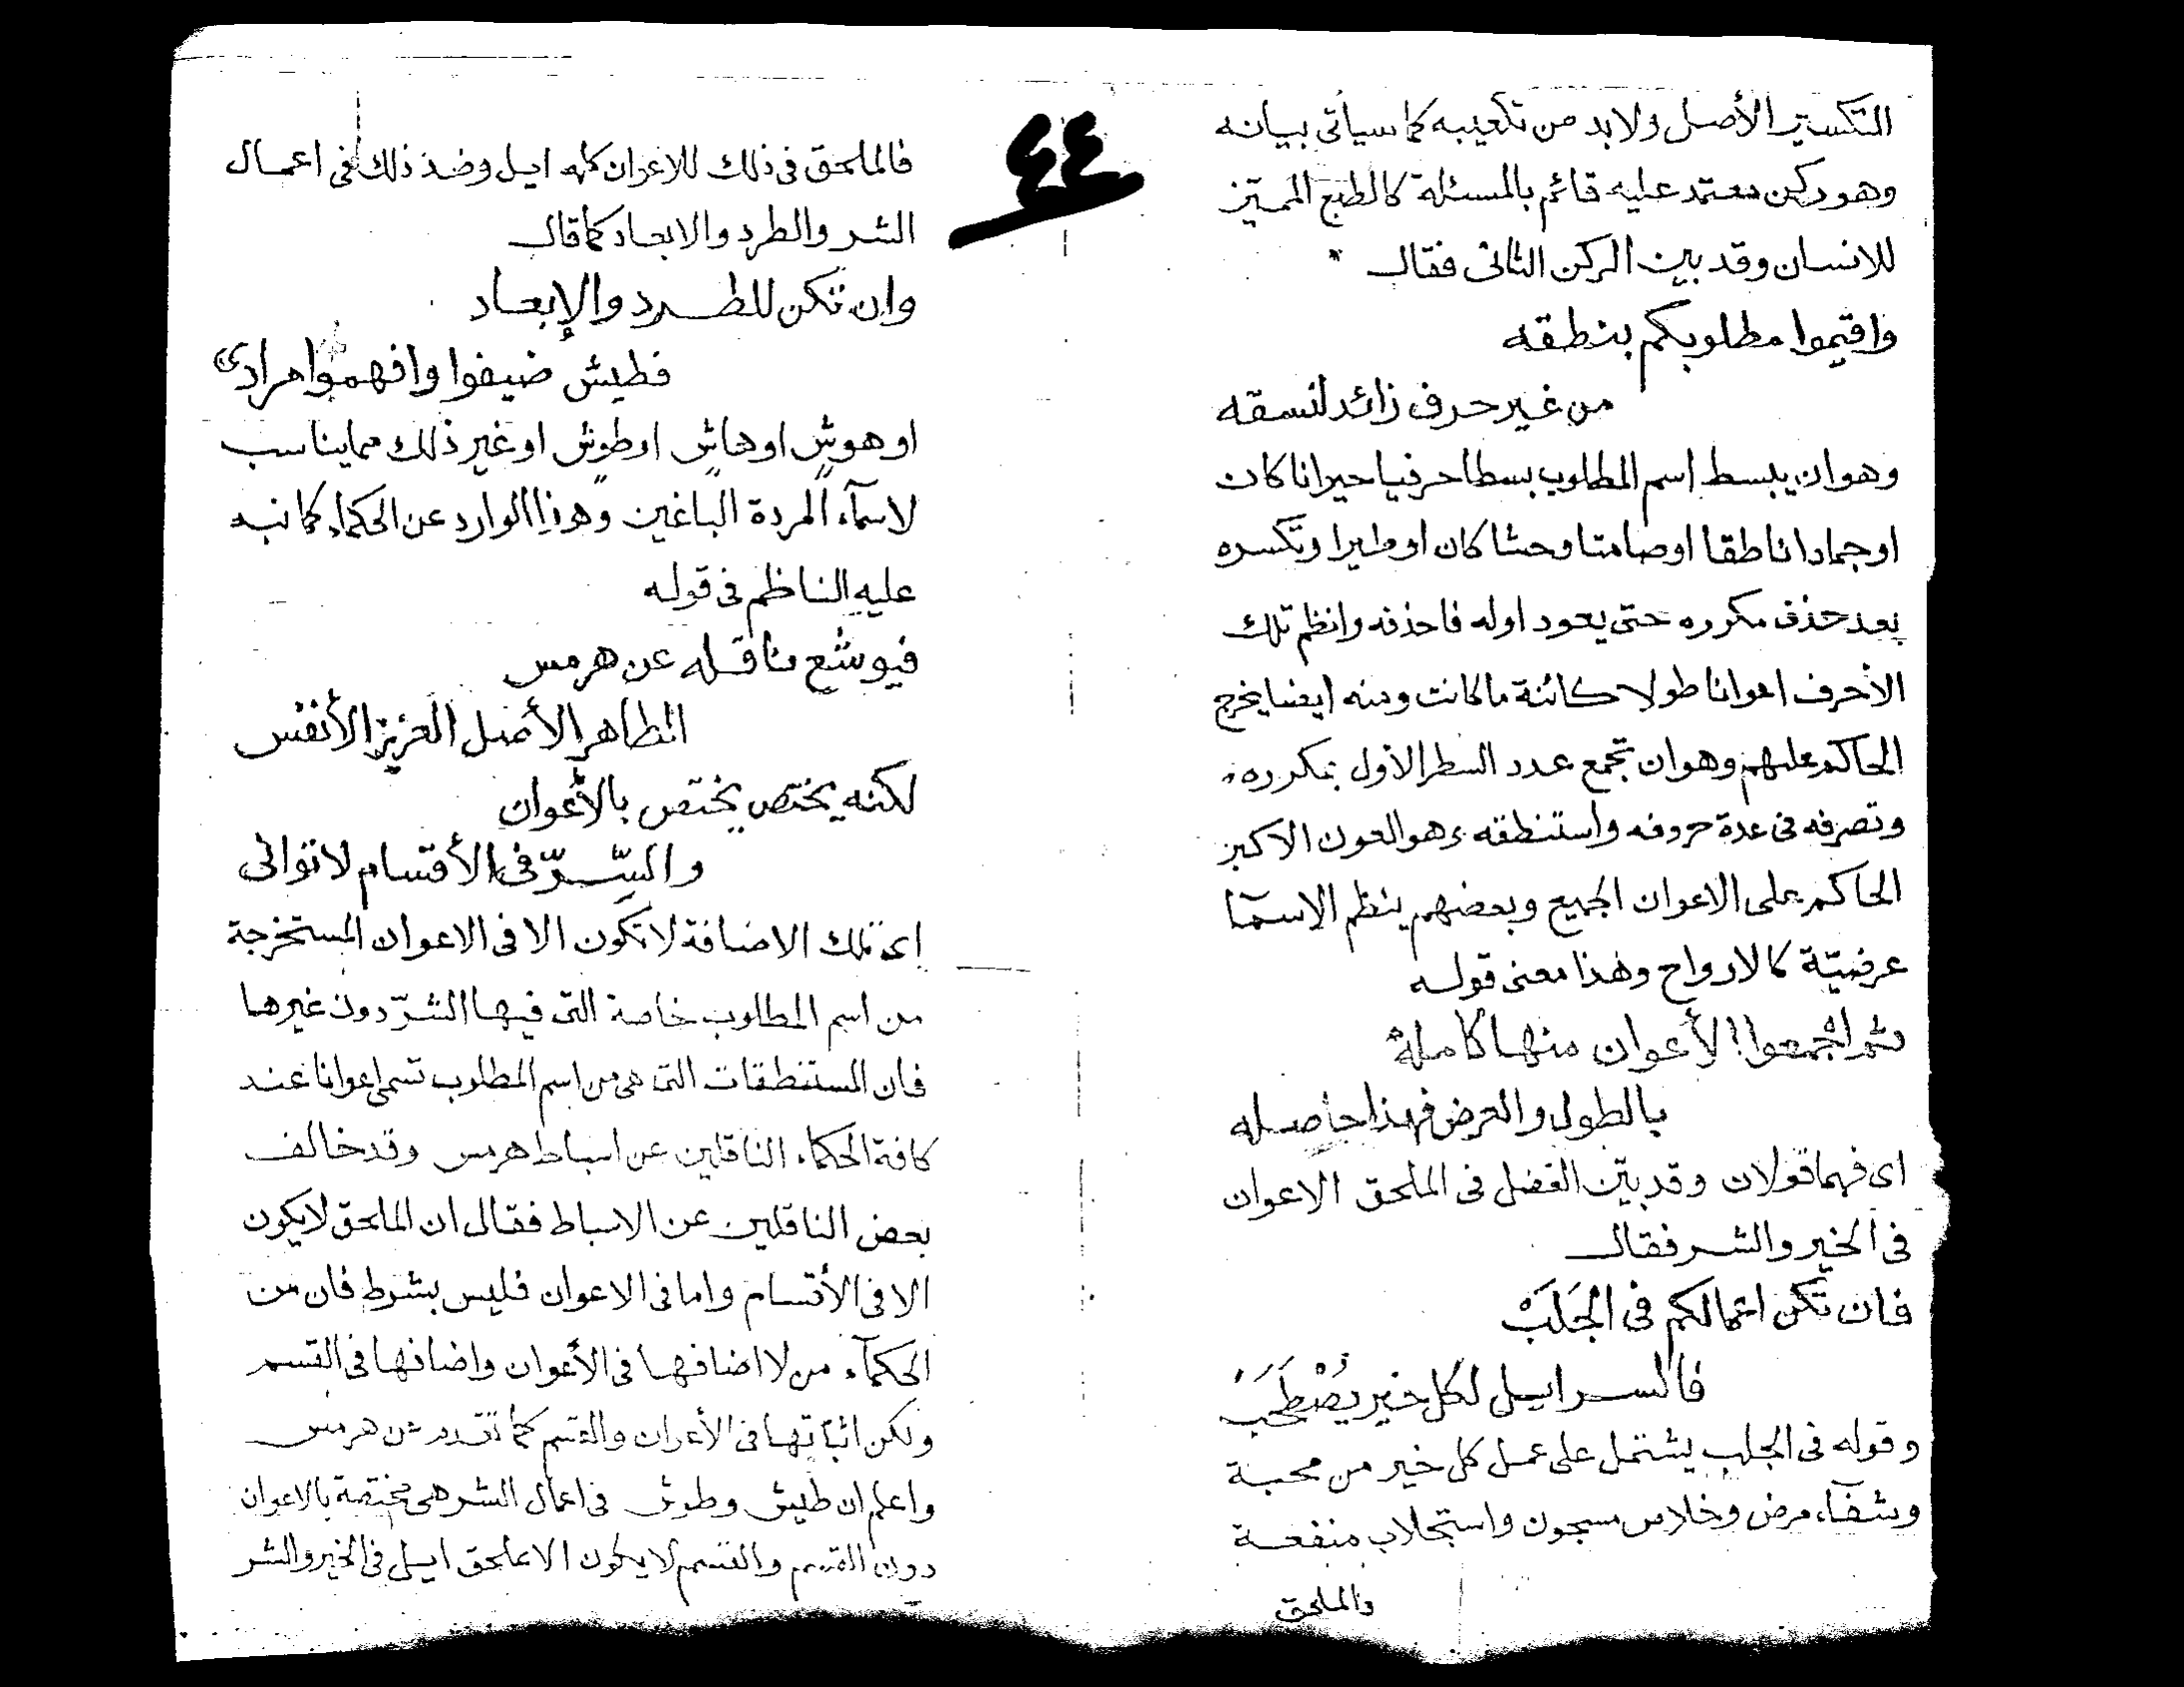 التكسير الأصل ولابد من تكعيبه كما سيأتى بيانه
وهو ركن معتمد عليه قائم بالمسئلة كالطبع المميز
للانسان وقد بين الركن الثانى فقال
واقيموا مطلوبكم بنطقه
من غير حرف زائد لنسقه
وهو ان يبسط اسم المطلوب بسطا حرفيا حيوانا كان
او جمادا ناطقا او صامتا وحشا كان او طيرا وتكسره
بعد حذف مكرره حتى يعود اوله فاحذفه وانظم تلك
الاحرف اعوانا طولا كائنة ما كانت ومنه ايضا يخرج
الحاكم عليهم وهو ان تجمع عدد السطر الاول بمكرره
وتصرفه فى عدة حروفه واستنطقه وهو العون الاكبر
الحاكم على الاعوان الجميع وبعضهم ينظم الاسمآ
عرضيّة كالارواح وهذا معنى قوله
ثم اجمعوا الأعوان منها كامله
بالطول والعرض فهذا حاصله
اى فهما قولان وقد بيّن الفضل فى الملحق الاعوان
فى الخير والشر فقال
فان تكن اعمالكم فى الجَلَبْ
فالسر ايل لكل خير يُصْطَحَبْ
وقوله فى الجلب يشتمل على عمل كل خير من محبة
وشفآء مرض وخلاص مسجون واستجلاب منفعة
والملحق
٤٤
فالملحق فى ذلك للاعوان كلمه ايل وضد ذلك فى اعمال
الشر والطرد والابعاد كما قال
وان تكن للطرد والإبعاد
فطيش ضيفوا وافهموا مرادى
او هوش او هاش او طوش او غير ذلك مما يناسب
لاسمآء المردة الباغين وهو ذا الوارد عن الحكماء كما نبه
عليه الناظم فى قوله
فيوشع ناقله عن هرمس
الطاهر الأصل العزيز الأنفس
لكنه يختص يختص بالأعوان
والسِّرّ فى الأقسام لا توانى
اى تلك الاضافة لا تكون الا فى الاعوان المستخرجة
من اسم المطلوب خاصة التى فيها الشرّ دون غيرها
فان المستنطقات التى هى من اسم المطلوب تسمى اعوانا عند
كافة الحكماء الناقلين عن اسباط هرمس وقد خالف
بعض الناقلين عن الاسباط فقال ان الملحق لا يكون
الا فى الأقسام واما فى الاعوان فليس بشرط فان من
الحكمآء من لا اضافها فى الأعوان واضافها فى القسم
ولكن اثباتها فى الأعوان والقسم كما تقدم عن هرمس
واعلم ان طيش وطوش فى اعمال الشر هى مختصة بالاعوان
دون القسم والقسم لا يكون الا ملحق ايل فى الخير والشر